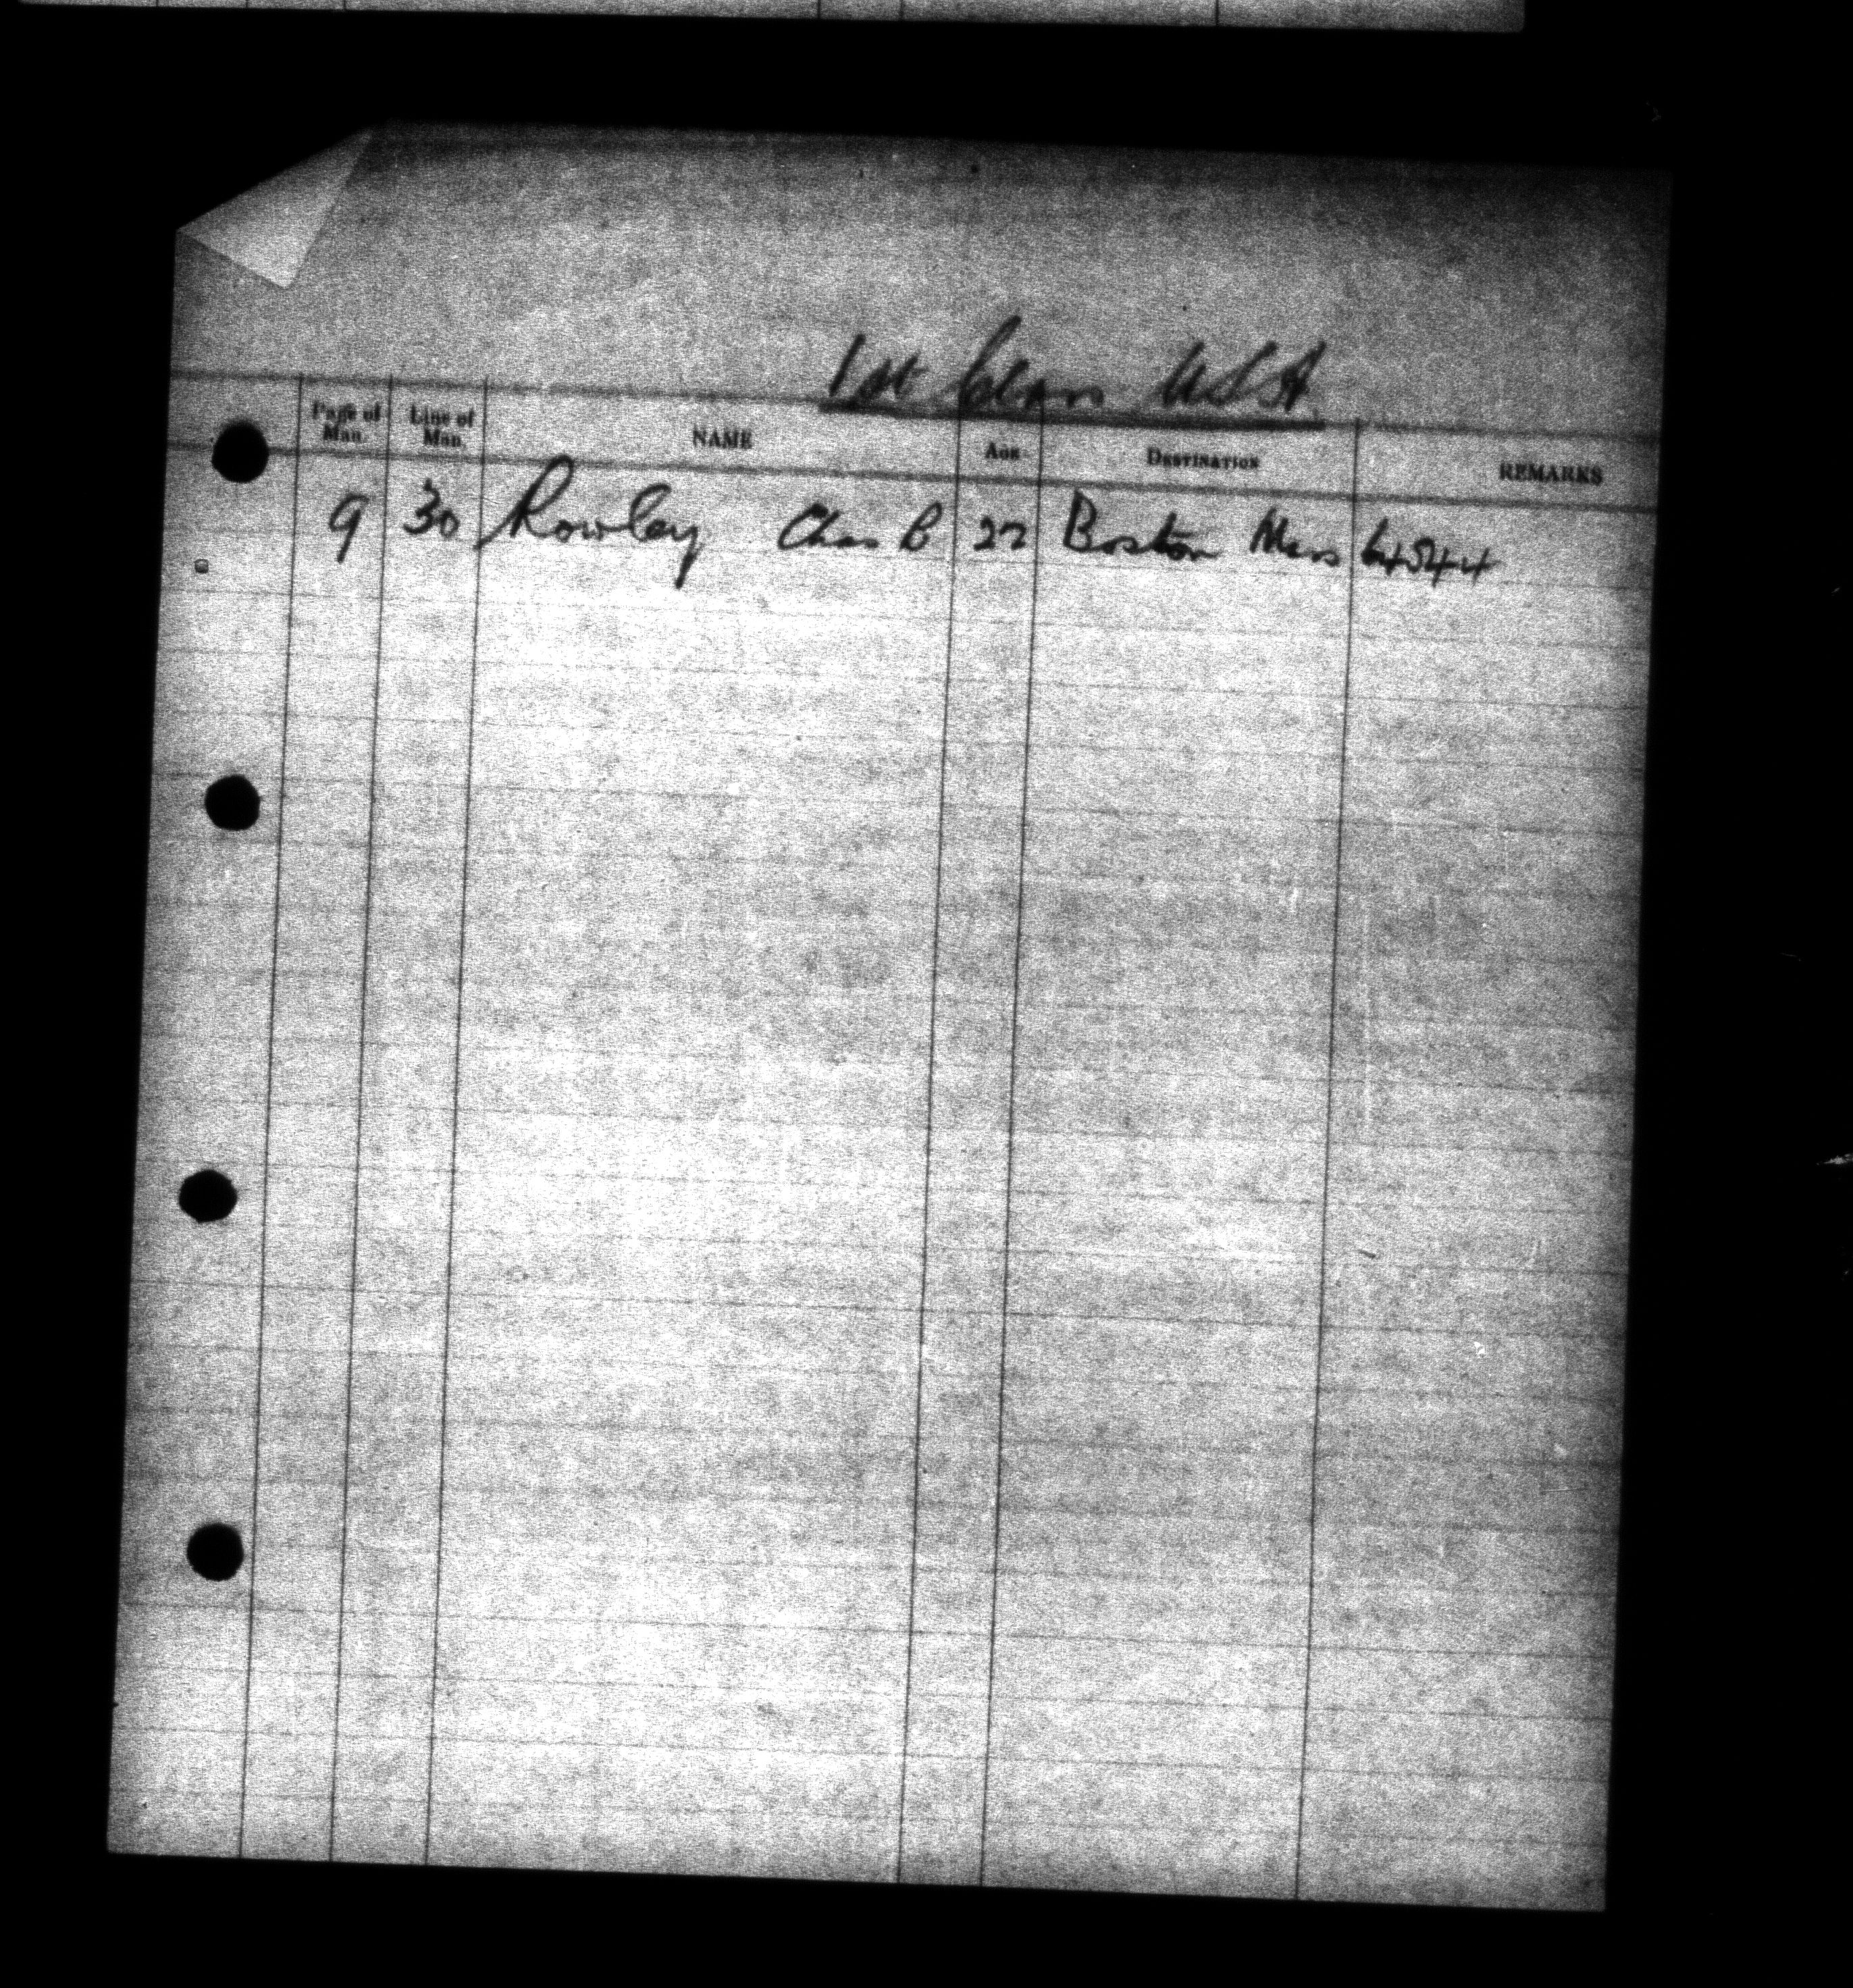 1st Class USA
Page of Man. Line of Man. NAME AGE DESTINATION REMARKS
9 30 Rowley Chas B 22 Boston Mass 64544